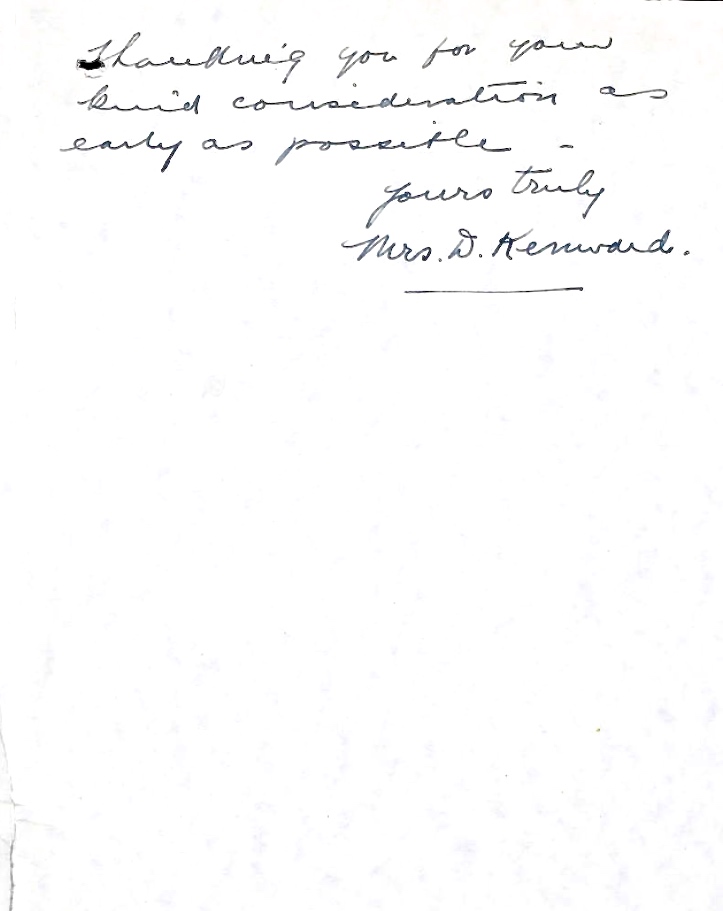 Thanking you for your
kind consideration as
early as possible -
Yours truly
Mrs. D. Kenward.